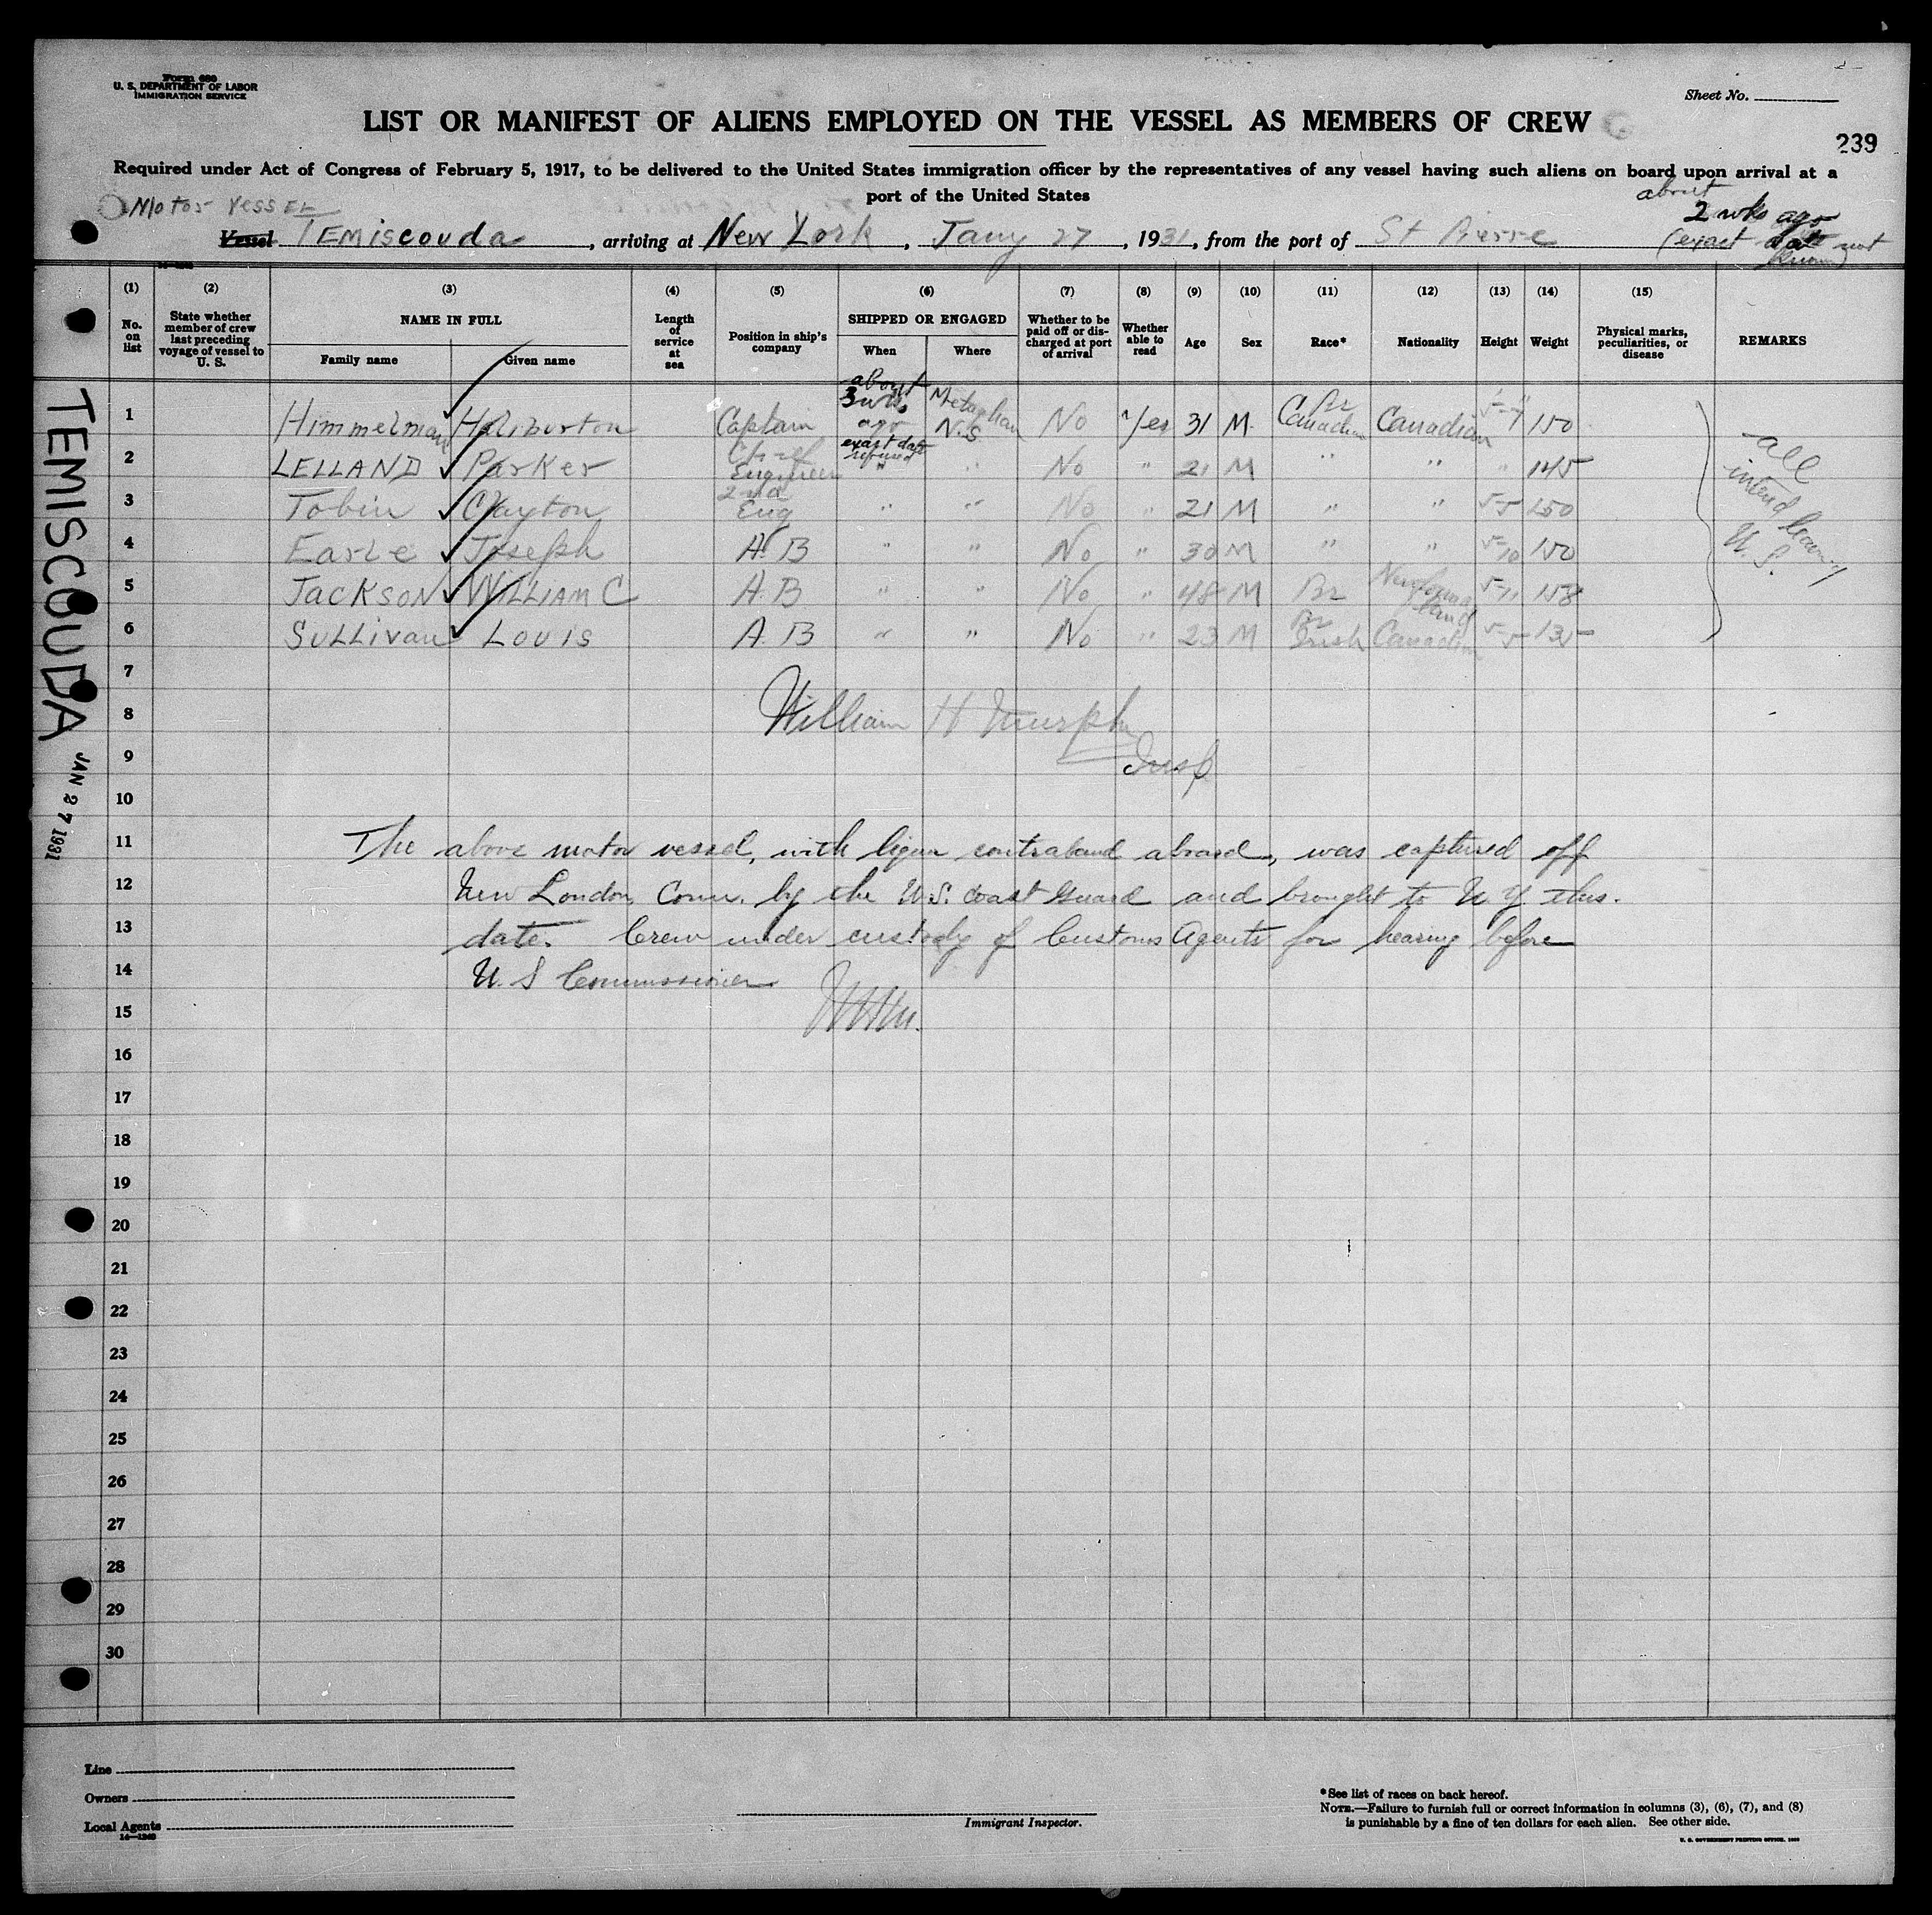 Form 680
U. S. DEPARTMENT OF LABOR
IMMIGRATION SERVICE
Sheet No.
LIST OR MANIFEST OF ALIENS EMPLOYED ON THE VESSEL AS MEMBERS OF CREW
239
Required under Act of Congress of February 5, 1917, to be delivered to the United States immigration officer by the representatives of any vessel having such aliens on board upon arrival at a
port of the United States
Motor Vessel
about
2 wks ago
Vessel TEMiscouda, arriving at New York, Jany 27, 1931, from the port of St Pierre (exact date not
known)
(1) (2) (3) (4) (5) (6) (7) (8) (9) (10) (11) (12) (13) (14) (15)
No. on list
State whether member of crew last preceding voyage of vessel to U. S.
NAME IN FULL
Family name Given name
Length of service at sea
Position in ship's company
SHIPPED OR ENGAGED
When Where
Whether to be paid off or discharged at port of arrival
Whether able to read
Age Sex Race* Nationality Height Weight
Physical marks, peculiarities, or disease
REMARKS
1 Himmelman Haliburton Captain about 3 wks ago exact date refused N.S. No Yes 31 M. Br Canadian Canadian 5-7 150
2 LELLAND Parker Chief Engineer " " No " 21 M " " " 145
3 Tobin Clayton 2nd Eng " " No " 21 M " " 5-5 150
4 Earle Joseph A.B " " No " 30 M " " 5-10 150
5 JACKSON WILLIAM C A.B " " No " 48 M Br Newfoundland 5-11 158
6 SULLIVAN LOUIS A.B " " No " 23 M Br Irish Canadian 5-5 135
all
intend leaving
U.S.
7
8 William H Murphy
9 Insp
10
11 The above motor vessel, with liquor contraband aboard, was captured off
12 New London, Conn. by the U.S. Coast Guard and brought to N Y this
13 date. Crew under custody of Customs Agents for hearing before
14 U. S Commissioner
15 WHM.
16
17
18
19
20
21
22
23
24
25
26
27
28
29
30
TEMISCOUDA
JAN 27 1931
Line
Owners
Local Agents
14—1240
Immigrant Inspector.
*See list of races on back hereof.
NOTE.—Failure to furnish full or correct information in columns (3), (6), (7), and (8)
is punishable by a fine of ten dollars for each alien. See other side.